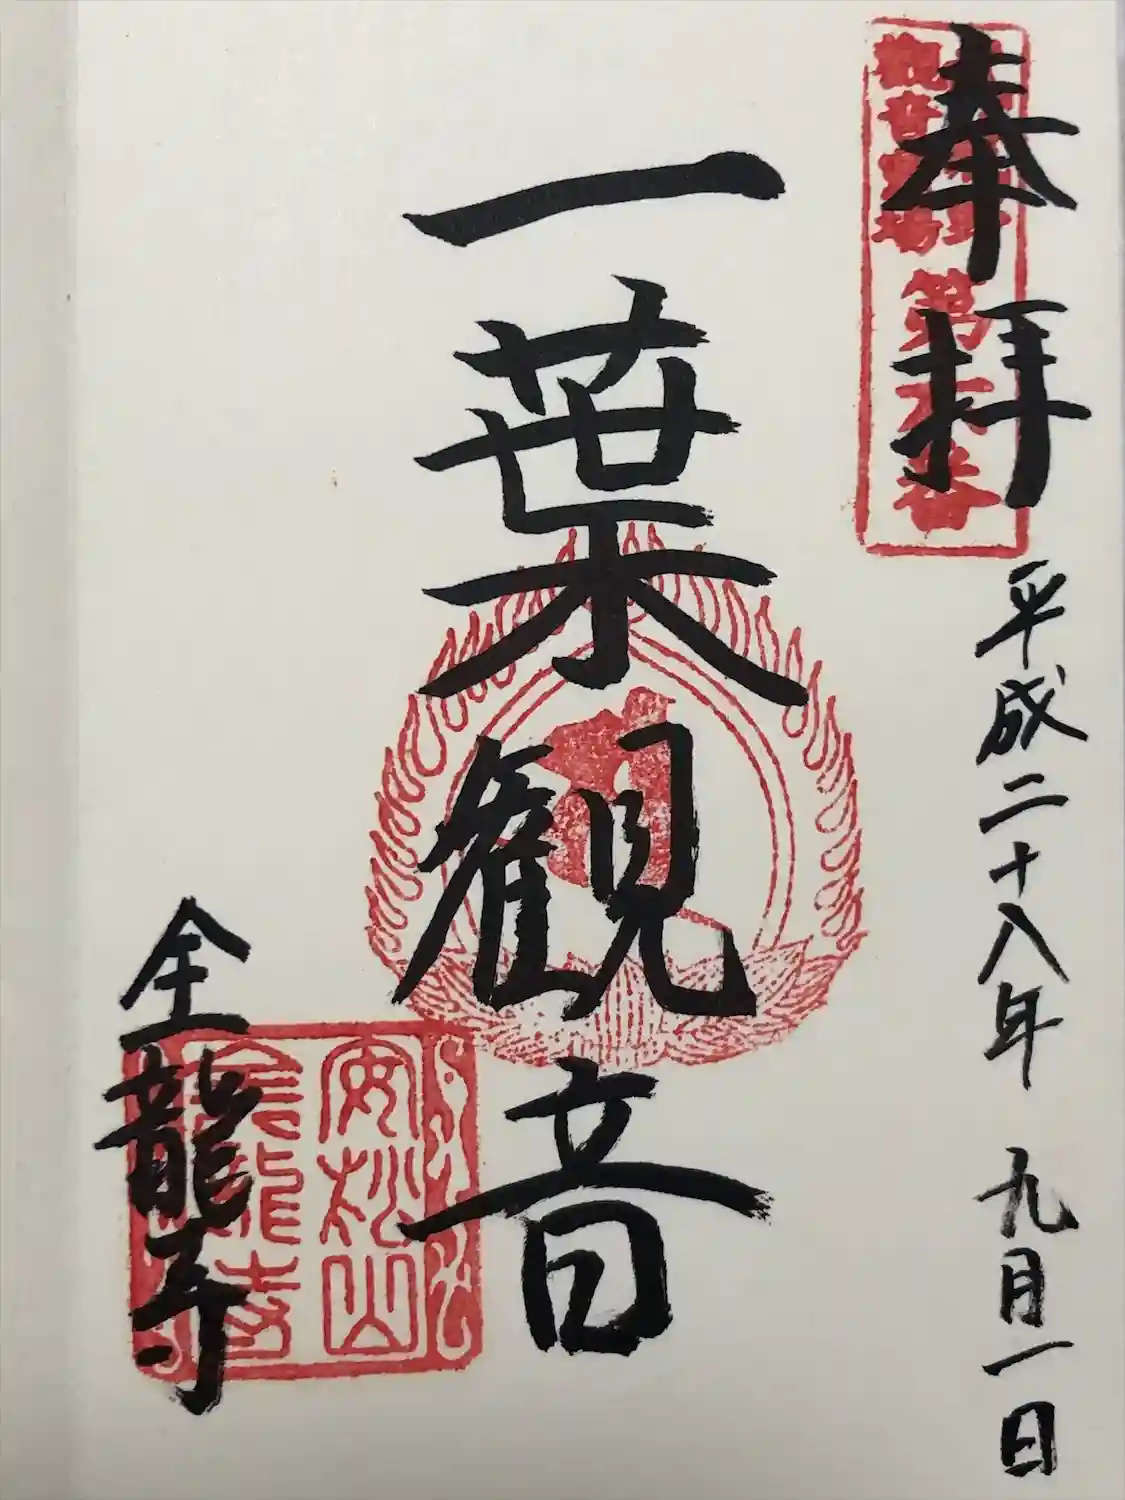 奉拝
平成二十八年 九月一日
観音霊場
第六番
一葉観音
安松山
金龍寺
金龍寺